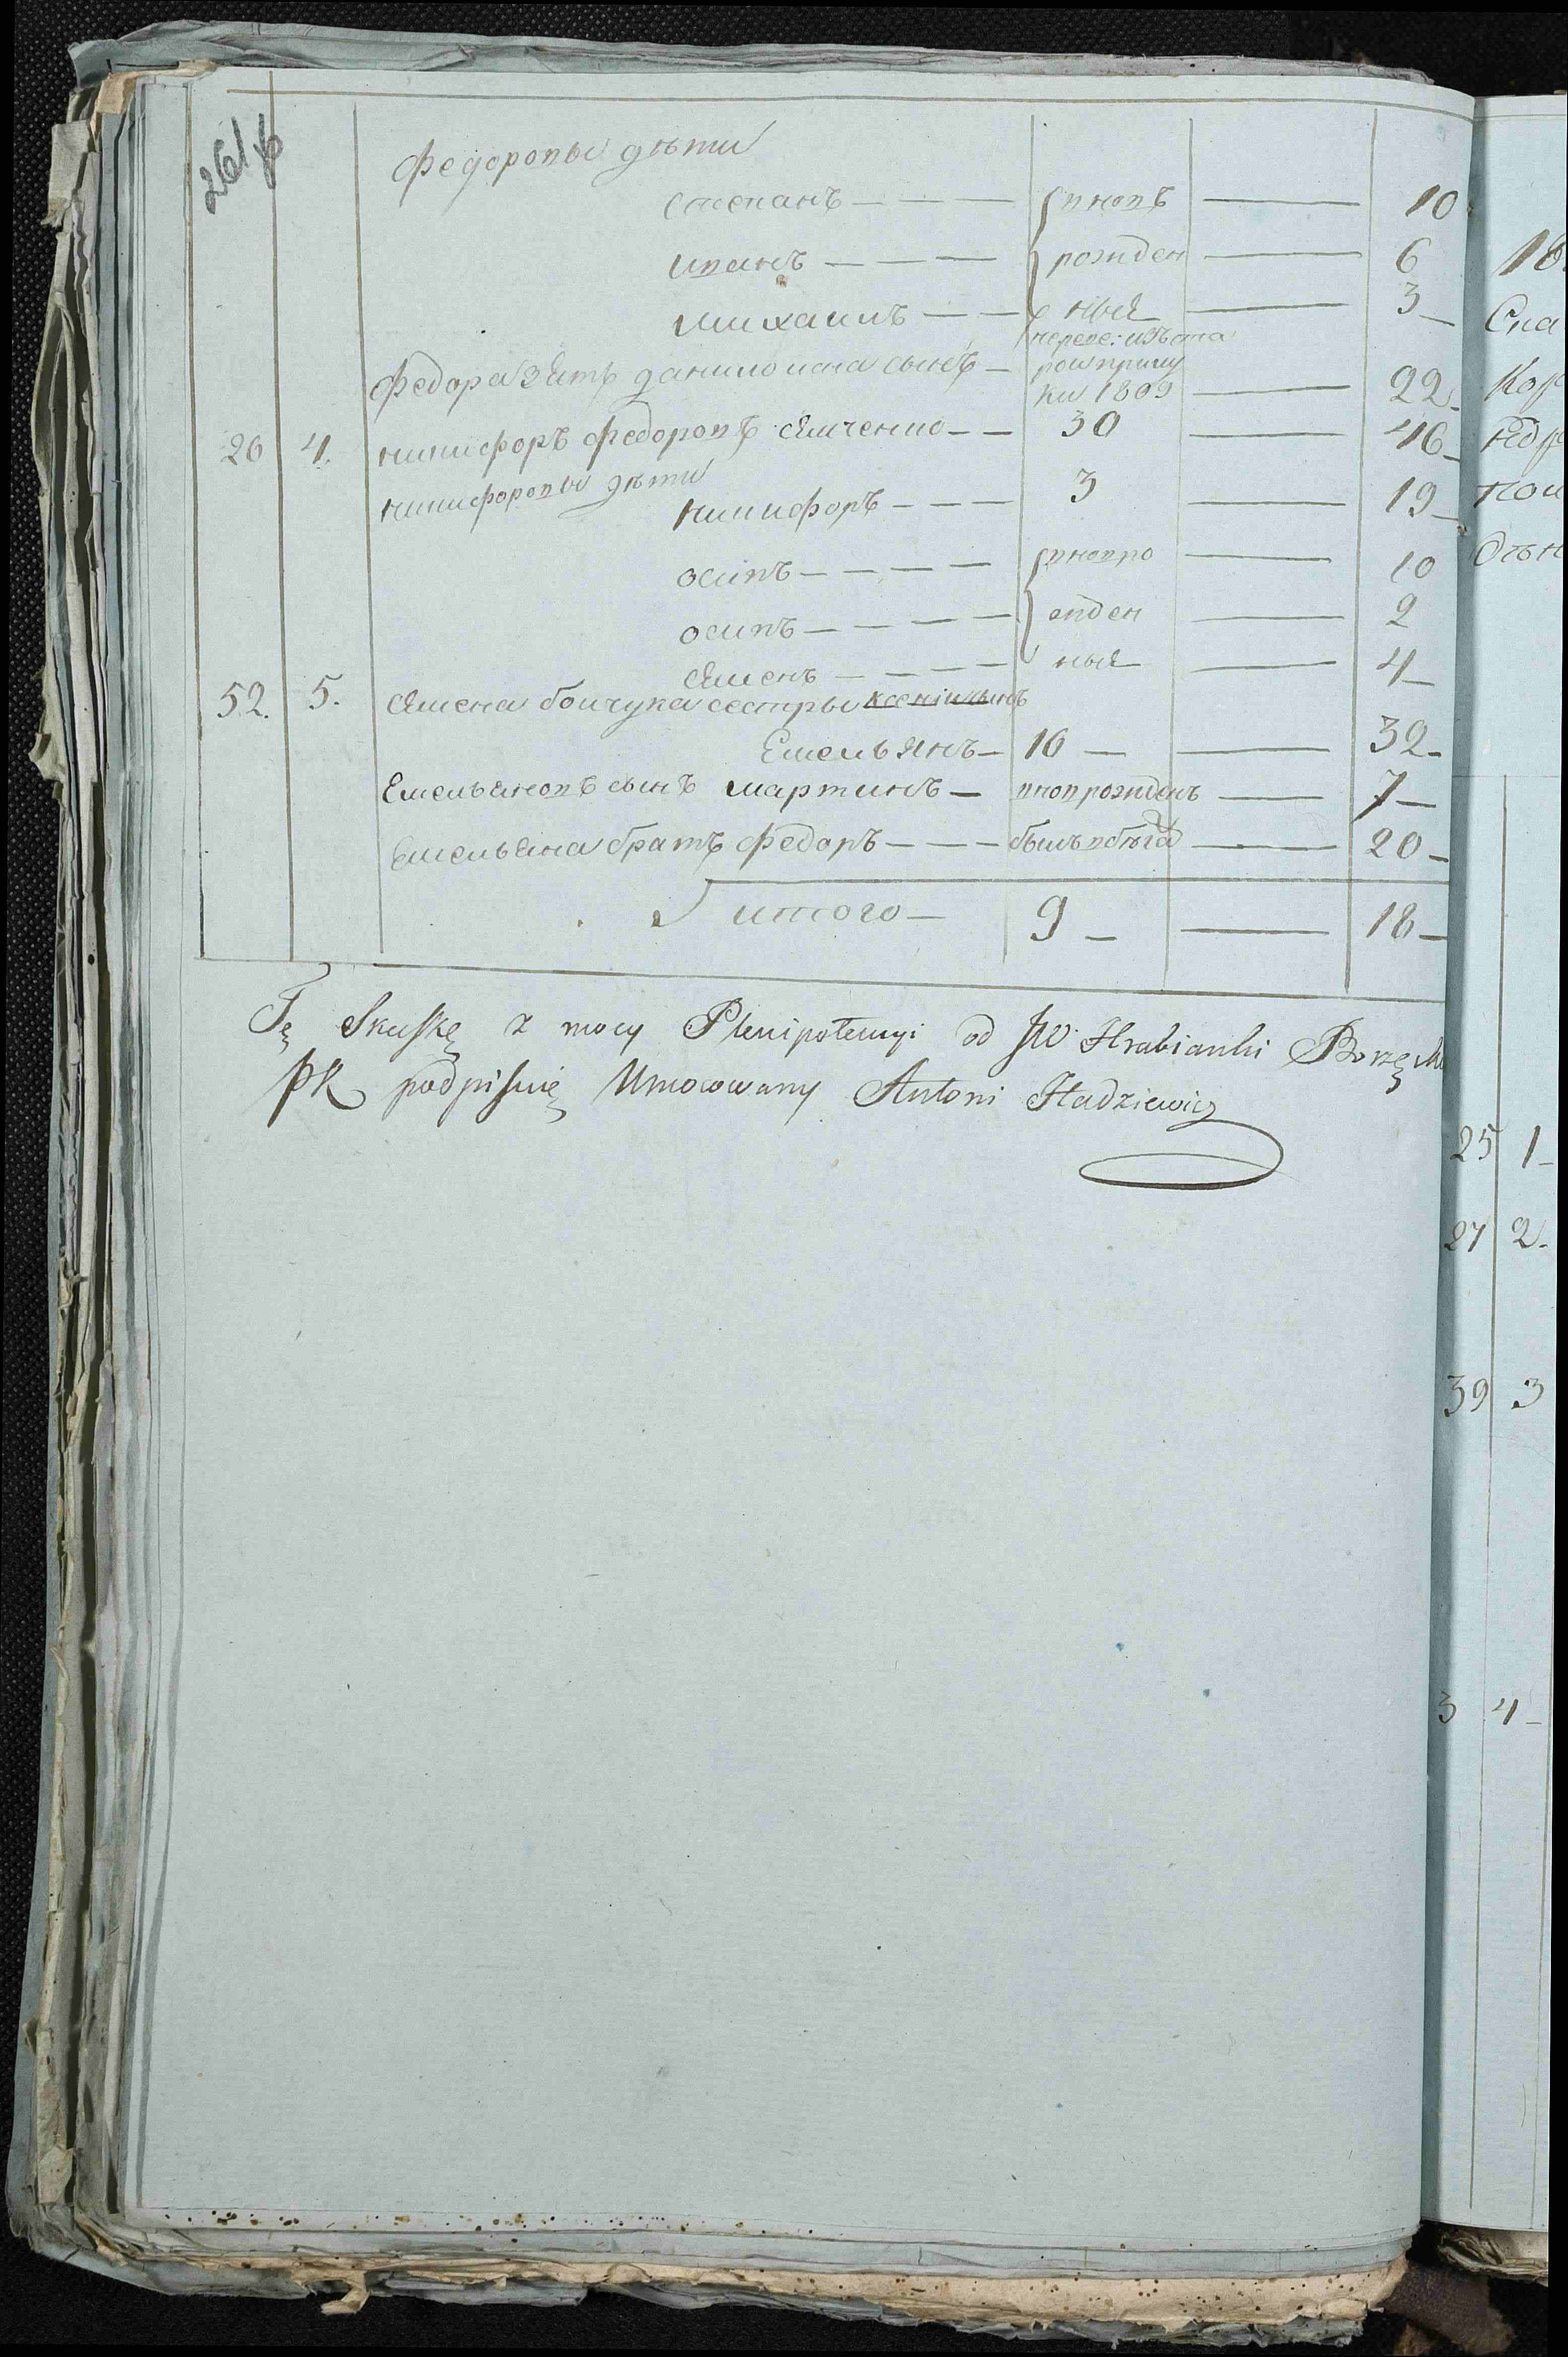 261
Федоровы дѣти
степанъ — — — вновъ — 10
иванъ — — — рожден — 6
михаилъ — — ныя — 3
Федора зять данило исна сынъ — переве: изъ ста рои прилу ки 1809 — 22
26 4. никифоръ Федоровъ Семченко — — 30 — 46
никифоровы дѣти
никифоръ — — — 3 — 19
осипъ — — — — вновро — 10
осипъ — — — — жден — 2
Семенъ — — — ныя — 4
52. 5. Семена бойчука сестры ксеніи сынъ
Емельянъ — 16 — — 32
Емельяновъ сынъ мартинъ — вноврожденъ — 7
Емельяна братъ Федоръ — — — былъ вбѣга — 20
итого — 9 — — 18
Tę Skaskę z mocy Plenipotencyi od JW. Hrabianki
PR podpisuię Umocowany Antoni Hadziewicz
18
25 1
27 2
39 3
3 4